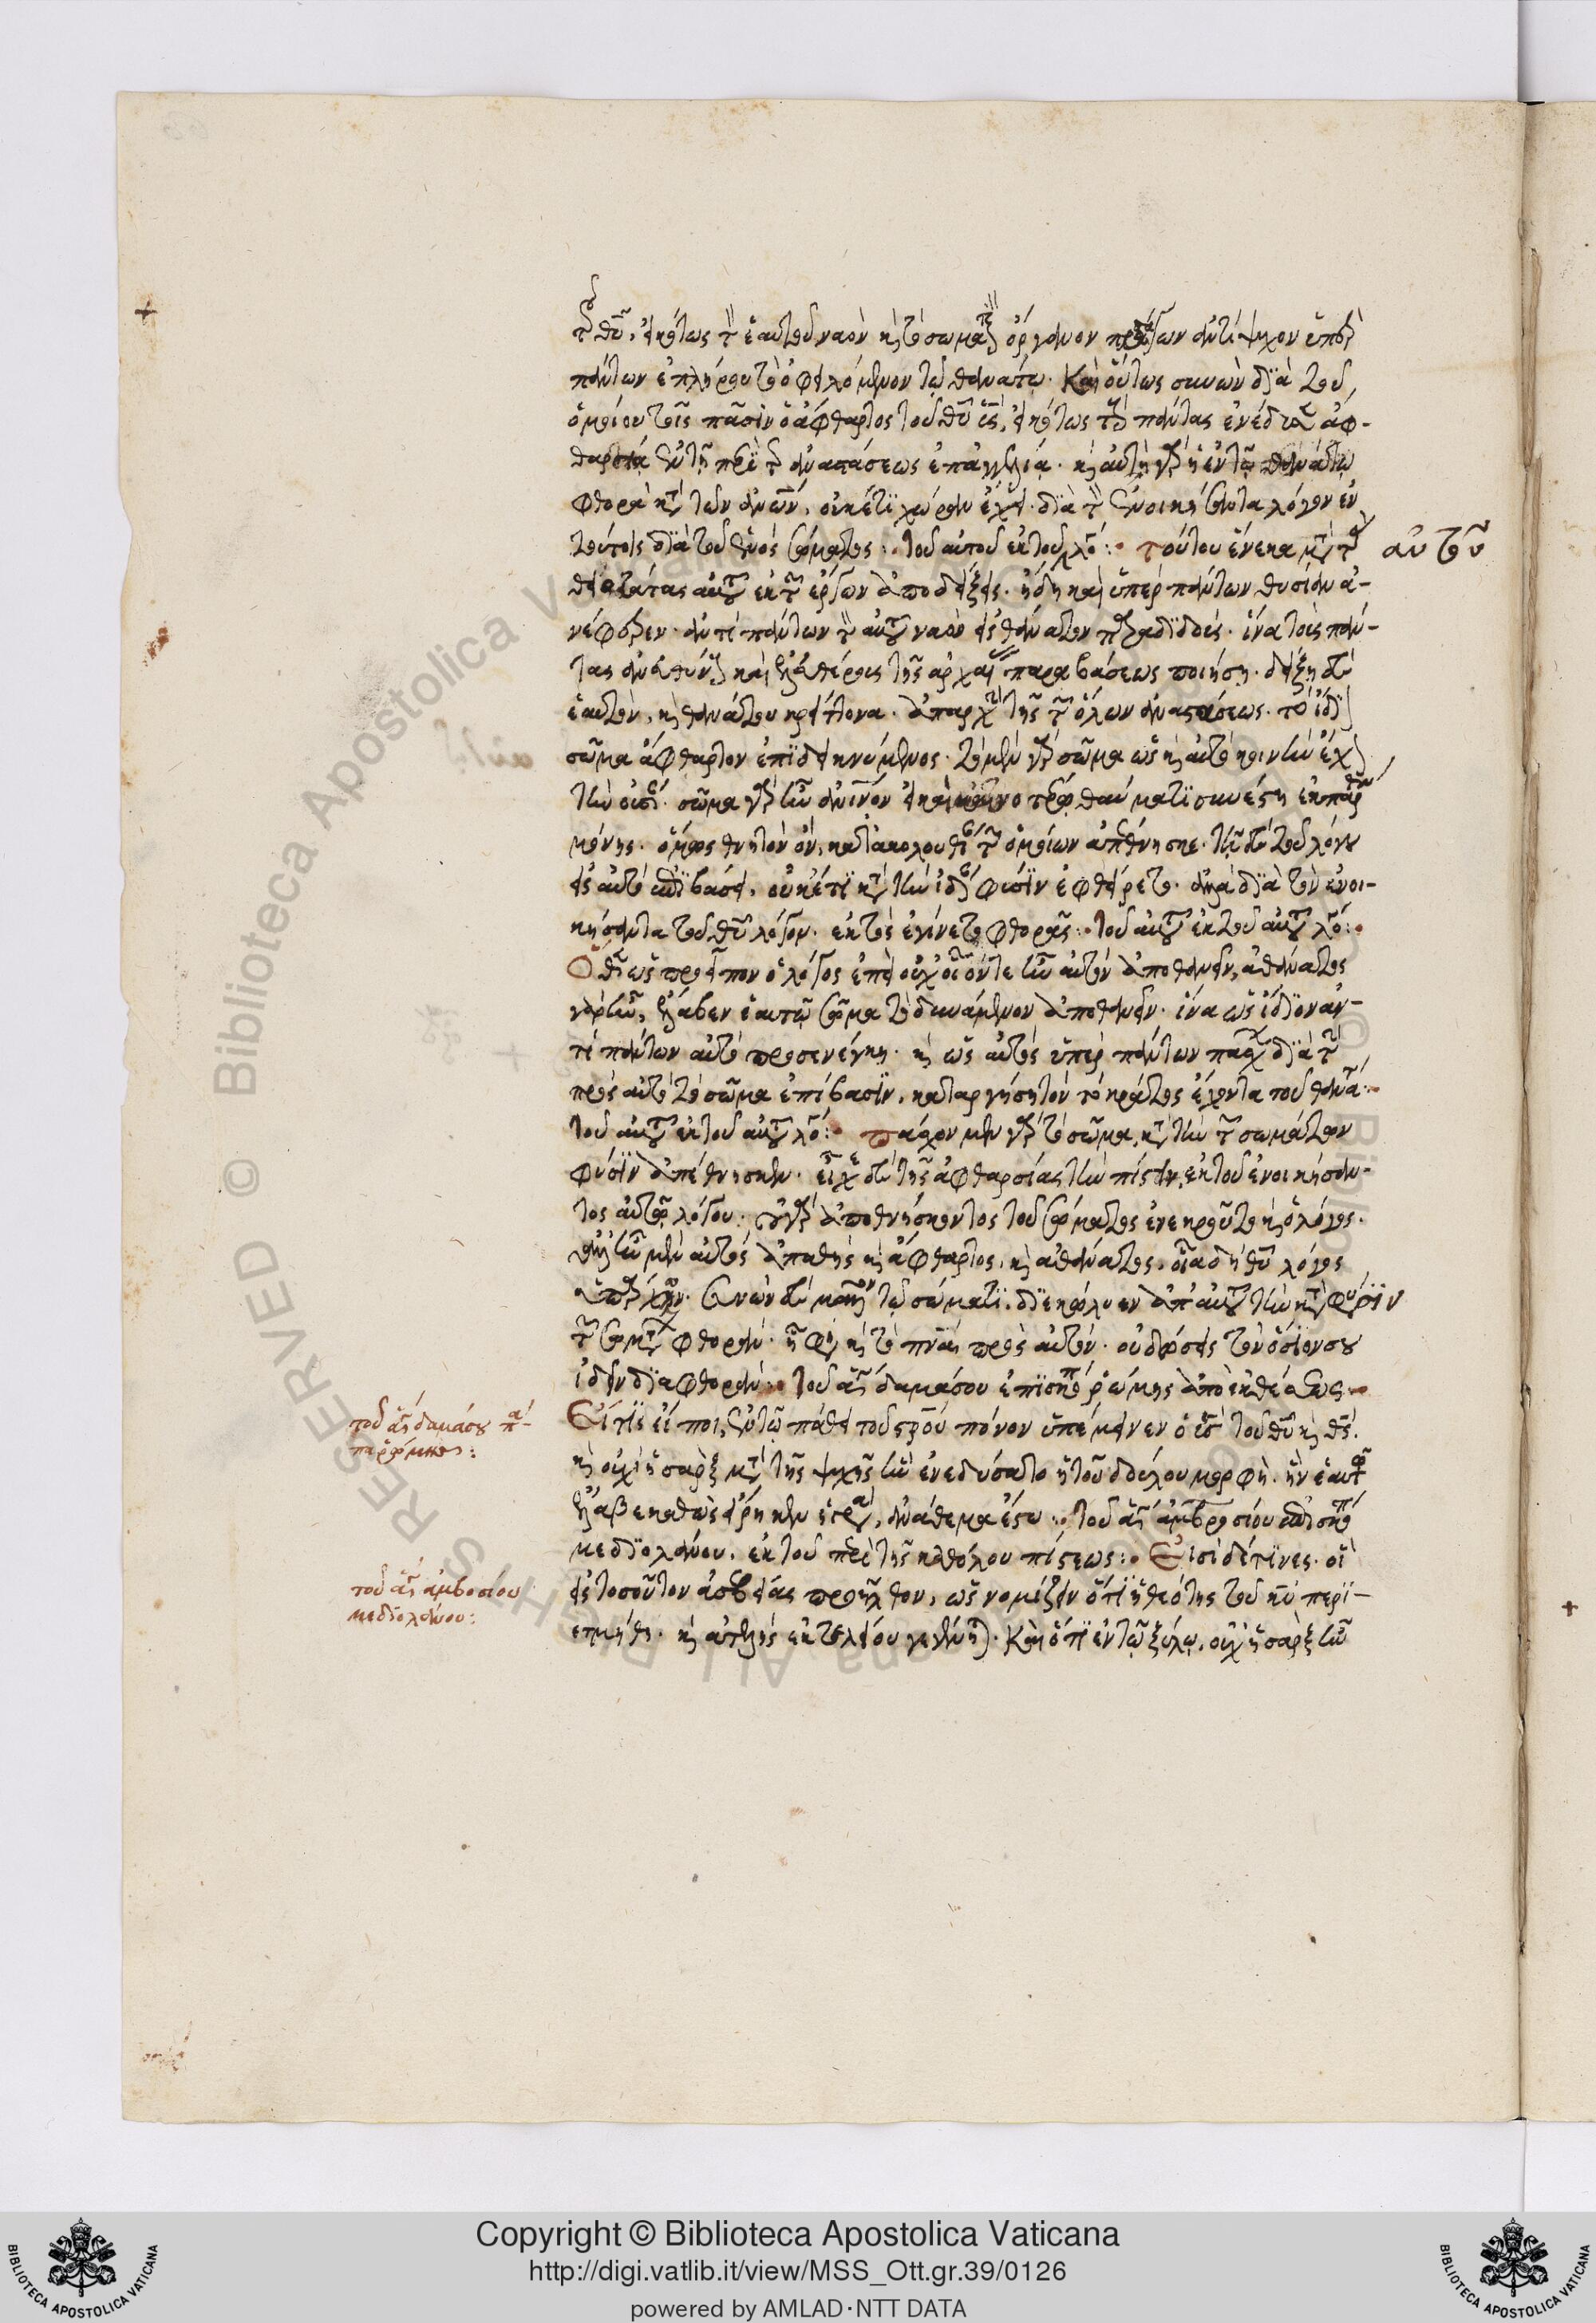 τοῦ θῦ, εἰκότως τὸν ἑαυτοῦ ναὸν καὶ τὸ σωματικὸν ὄργανον προσάγων ἀντίψυχον ὑπὲρ
πάντων ἐπλήρου τὸ ὀφειλόμενον τῷ θανάτῳ. Καὶ οὕτως συνὼν διὰ τοῦ
ὁμοίου τοῖς πᾶσιν ὁ ἄφθαρτος τοῦ θῦ υἱὸς, εἰκότως τοὺς πάντας ἐνέδυσεν ἀφ-
θαρσίαν ἐν τῇ περὶ τῆς ἀναστάσεως ἐπαγγελίᾳ. καὶ αὐτὴ γὰρ ἡ ἐν τῷ θανάτῳ
φθορὰ κατὰ τῶν ἀνῶν, οὐκέτι χώραν ἔχει. διὰ τὸν ἐνοικήσαντα λόγον ἐν
τούτοις διὰ τοῦ ἑνὸς σώματος :· τοῦ αὐτοῦ ἐκ τοῦ λό: τούτου ἕνεκα μετὰ τὰς
αὐτοῦ
θεότητος αὐτοῦ ἐκ τῶν ἔργων ἀποδείξεις. ἤδη καὶ ὑπὲρ πάντων θυσίαν ἀ-
νέφερεν. ἀντὶ πάντων τὸν αὐτοῦ ναὸν εἰς θάνατον παραδιδοὺς. ἵνα τοὺς πάν-
τας ἀνυπευθύνους καὶ ἐλευθέρους τῆς ἀρχαίας παραβάσεως ποιήσῃ. δείξῃ δὲ
ἑαυτὸν, καὶ θανάτου κρείττονα. ἀπαρχὴν τῆς τῶν ὅλων ἀναστάσεως. τὸ ἴδιον
σῶμα ἄφθαρτον ἐπιδεικνύμενος. τὸ μὲν γὰρ σῶμα ὡς καὶ αὐτὸ κοινὴν ἔχον
τὴν οὐσίαν. σῶμα γὰρ ἦν ἀνινον εἰ καὶ καινοτέρῳ θαύματι συνέστη ἐκ παρθένου
μόνης. ὅμως θνητὸν ὂν, κατ᾽ ἀκολουθίαν τῶν ὁμοίων ἀπέθνησκε. τῇ δὲ τοῦ λόγου
εἰς αὐτὸ ἐπιβάσει, οὐκέτι κατὰ τὴν ἰδίαν φύσιν ἐφθείρετο. ἀλλὰ διὰ τὸν ἐνοι-
κήσαντα τοῦ θῦ λόγον. ἐκτὸς ἐγίνετο φθορᾶς :· τοῦ αὐτοῦ ἐκ τοῦ αὐτοῦ λό:
Ὅθεν ὡς προεῖπον ὁ λόγος ἐπεὶ οὐχ οἷόν τε ἦν αὐτὸν ἀποθανεῖν, ἀθάνατος
γὰρ ἦν, ἔλαβεν ἑαυτῷ σῶμα τὸ δυνάμενον ἀποθανεῖν. ἵνα ὡς ἴδιον ἀν-
τὶ πάντων αὐτὸ προσενέγκῃ. καὶ ὡς αὐτὸς ὑπὲρ πάντων πάσχων διὰ τὴν
πρὸς αὐτὸ τὸ σῶμα ἐπίβασιν, καταργήσῃ τὸν τὸ κράτος ἔχοντα τοῦ θανά:
τοῦ αὐτοῦ ἐκ τοῦ αὐτοῦ λό: πάσχον μὲν γὰρ τὸ σῶμα, κατὰ τὴν τῶν σωμάτων
φύσιν ἀπέθνησκεν. εἶχε δὲ τῆς ἀφθαρσίας τὴν πίστιν, ἐκ τοῦ ἐνοικήσαν-
τος αὐτῷ λόγου. οὐ γὰρ ἀποθνήσκοντος τοῦ σώματος ἐνεκροῦτο καὶ ὁ λόγος.
ἀλλ᾽ ἦν μὲν αὐτὸς ἀπαθὴς καὶ ἄφθαρτος, καὶ ἀθάνατος, οἷα δὴ θῦ λόγος
ὑπάρχων. συνὼν δὲ μᾶλλον τῷ σώματι, διεκώλυεν ἀπ᾽ αὐτοῦ τὴν κατὰ φύσιν
τῶν σωμάτων φθοράν. ᾗ φησι καὶ τὸ πνᾶ πρὸς αὐτόν. οὐ δώσεις τὸν ὅσιόν σου
ἰδεῖν διαφθοράν :· τοῦ ἁγ δαμάσου ἐπισκόπου ῥώμης ἀπὸ ἐκθέσεως
τοῦ ἁγ δαμάσου πά-
πα ῥώμης:
Εἴ τις εἴποι, ἐν τῷ πάθει τοῦ σροῦ πόνον ὑπέμεινεν ὁ υἱς τοῦ θῦ καὶ θς.
καὶ οὐχὶ ἡ σὰρξ μετὰ τῆς ψυχῆς ἣν ἐνεδύσατο ἡ τοῦ δούλου μορφὴ. ἣν ἑαυτῷ
ἔλαβε καθὼς εἴρηκεν ἡ γραφὴ, ἀνάθεμα ἔστω :· τοῦ ἁγ ἀμβροσίου ἐπισκόπου
μεδιολάνου. ἐκ τοῦ περὶ τῆς καθόλου πίστεως :· Εἰσὶ δέ τινες. οἳ
τοῦ ἁγ ἀμβροσίου
μεδιολάνου:
εἰς τοσοῦτον ἀσεβείας προῆλθον, ὡς νομίζειν ὅτι ἡ θεότης τοῦ κυ περι-
ετμήθη. καὶ ἀτελὴς ἐκ τελείου γεγένηται. Καὶ ὅτι ἐν τῷ ξύλῳ, οὐχ ἡ σὰρξ ἦν
Copyright © Biblioteca Apostolica Vaticana
http://digi.vatlib.it/view/MSS_Ott.gr.39/0126
powered by AMLAD·NTT DATA